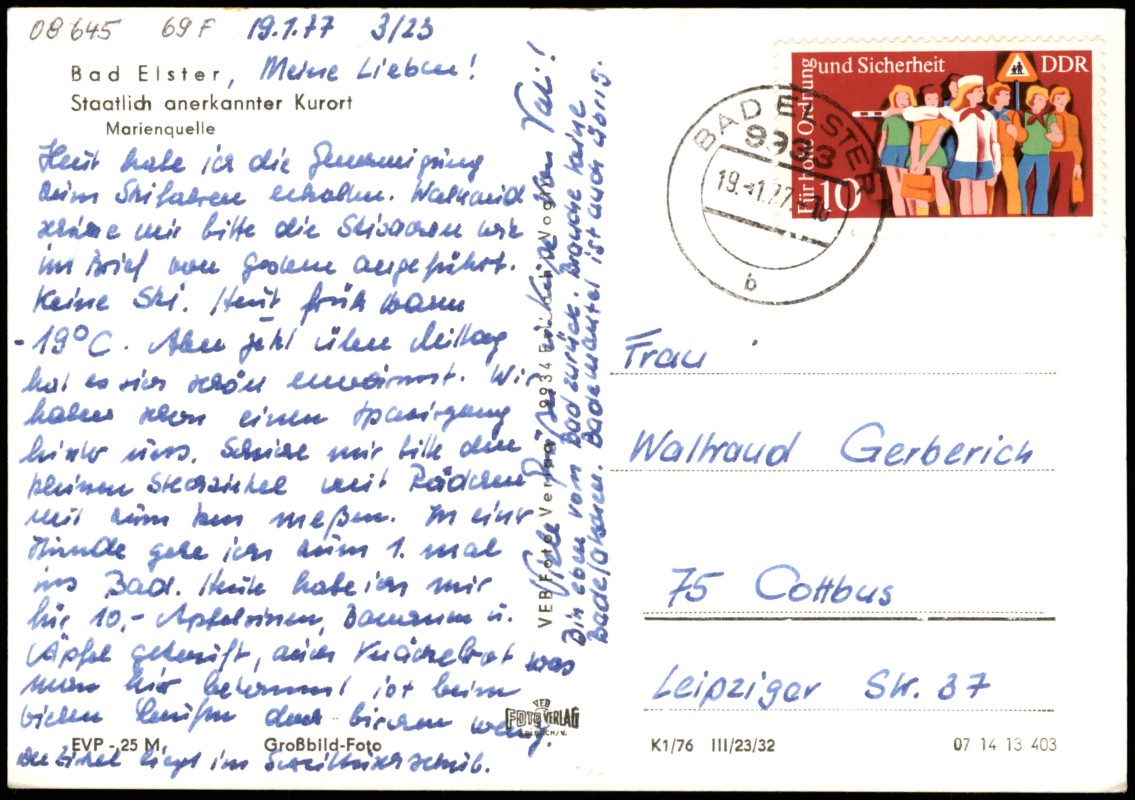 08645 69 F 19.1.77 3/23
Bad Elster, Meine Lieben!
Staatlich anerkannter Kurort
Marienquelle
Heut habe ich die Genemigung
zum Skifahren erhalten. Waltraud
schicke mir bitte die Skisachen wie
im Brief von gestern angeführt.
Keine Ski. Heut früh waren
-19°C. Aber jetzt über Mittag
hat es sich schön erwärmt. Wir
haben schon einen Spaziergang
hinter uns. Schicke mir bitte den
kleinen Steckzirkel mit Rädchen
mit zum km meßen. In einer
Stunde gehe ich zum 1. mal
ins Bad. Heute habe ich mir
für 10,- Apfelsinen, Bananen u.
Äpfel gekauft, auch Knäckebrot was
man hier bekommt ist beim
vielen laufen doch bischen wenig.
Der Zirkel liegt im Schreibtischschub.
Viele Grüße und Küße von Vati!
Bin eben vom Bad zurück. Brauche keine
Badelatschen. Bademantel ist auch übrig.
VEB Foto-Verlag 9934 Erlbach i. Vogtl.
VEB
FOTO VERLAG
ERLBACH/V.
EVP -,25 M
Großbild-Foto
Für hohe Ordnung
und Sicherheit
DDR
10
BAD ELSTER
9933
19.-1.77
b
Frau
Waltraud Gerberich
75 Cottbus
Leipziger Str. 37
K1/76 III/23/32
07 14 13 403